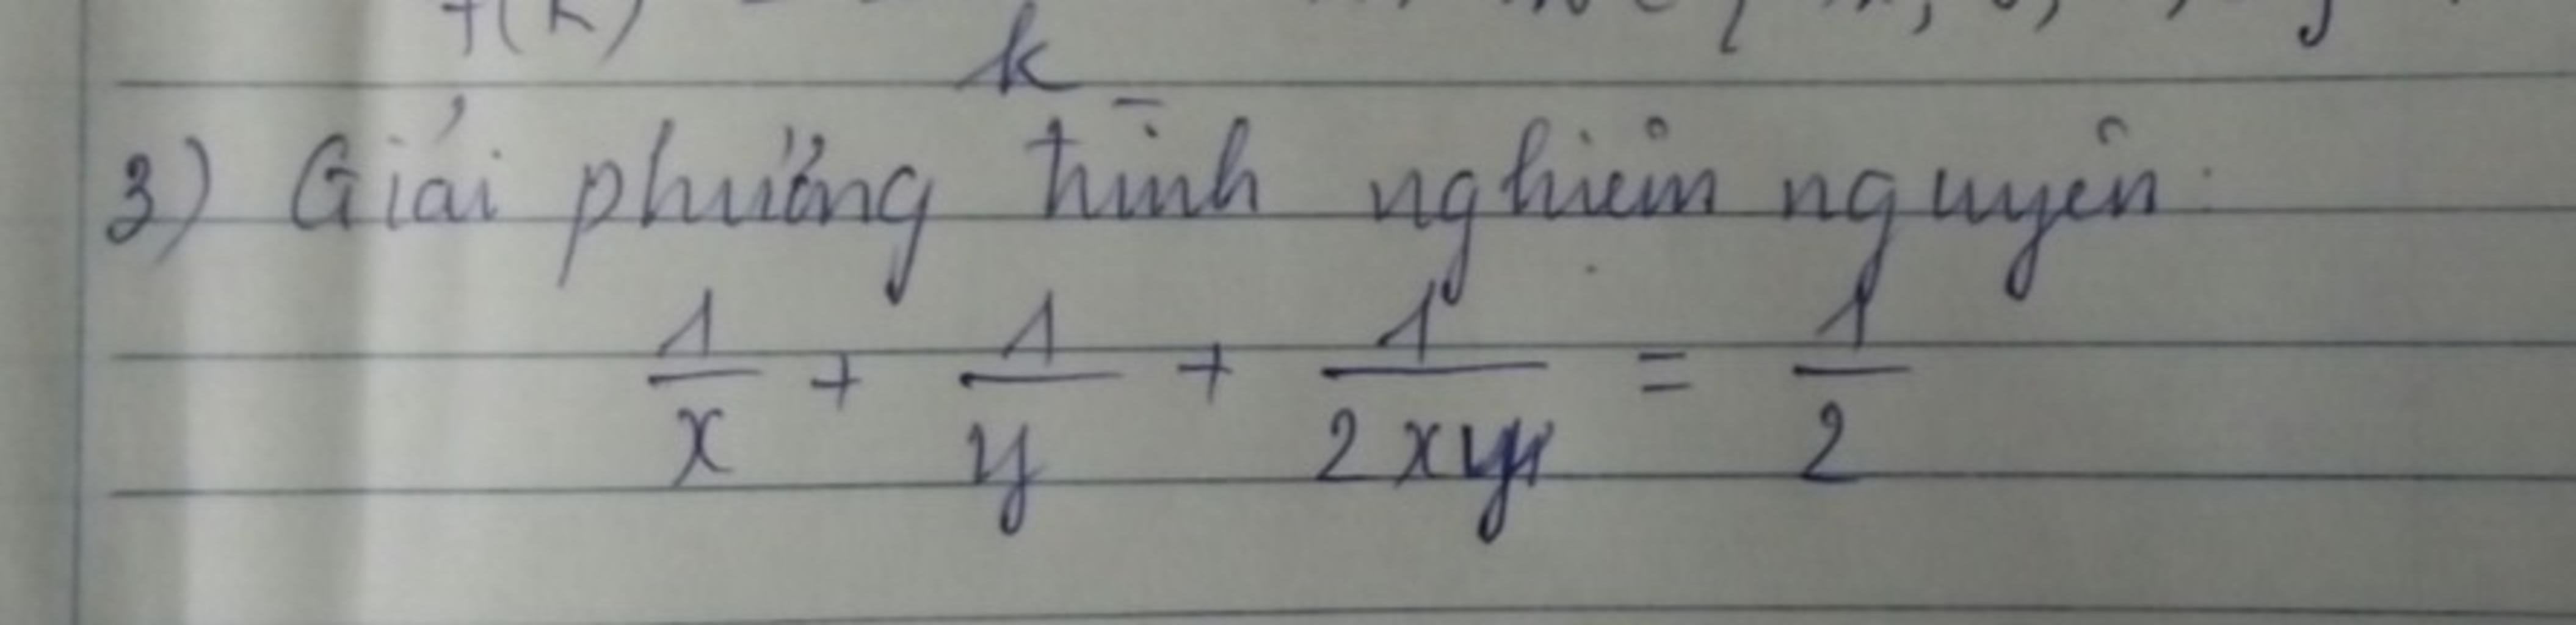 k
3) Giải phương trình nghiệm nguyên:
1/x + 1/y + 1/2xy = 1/2